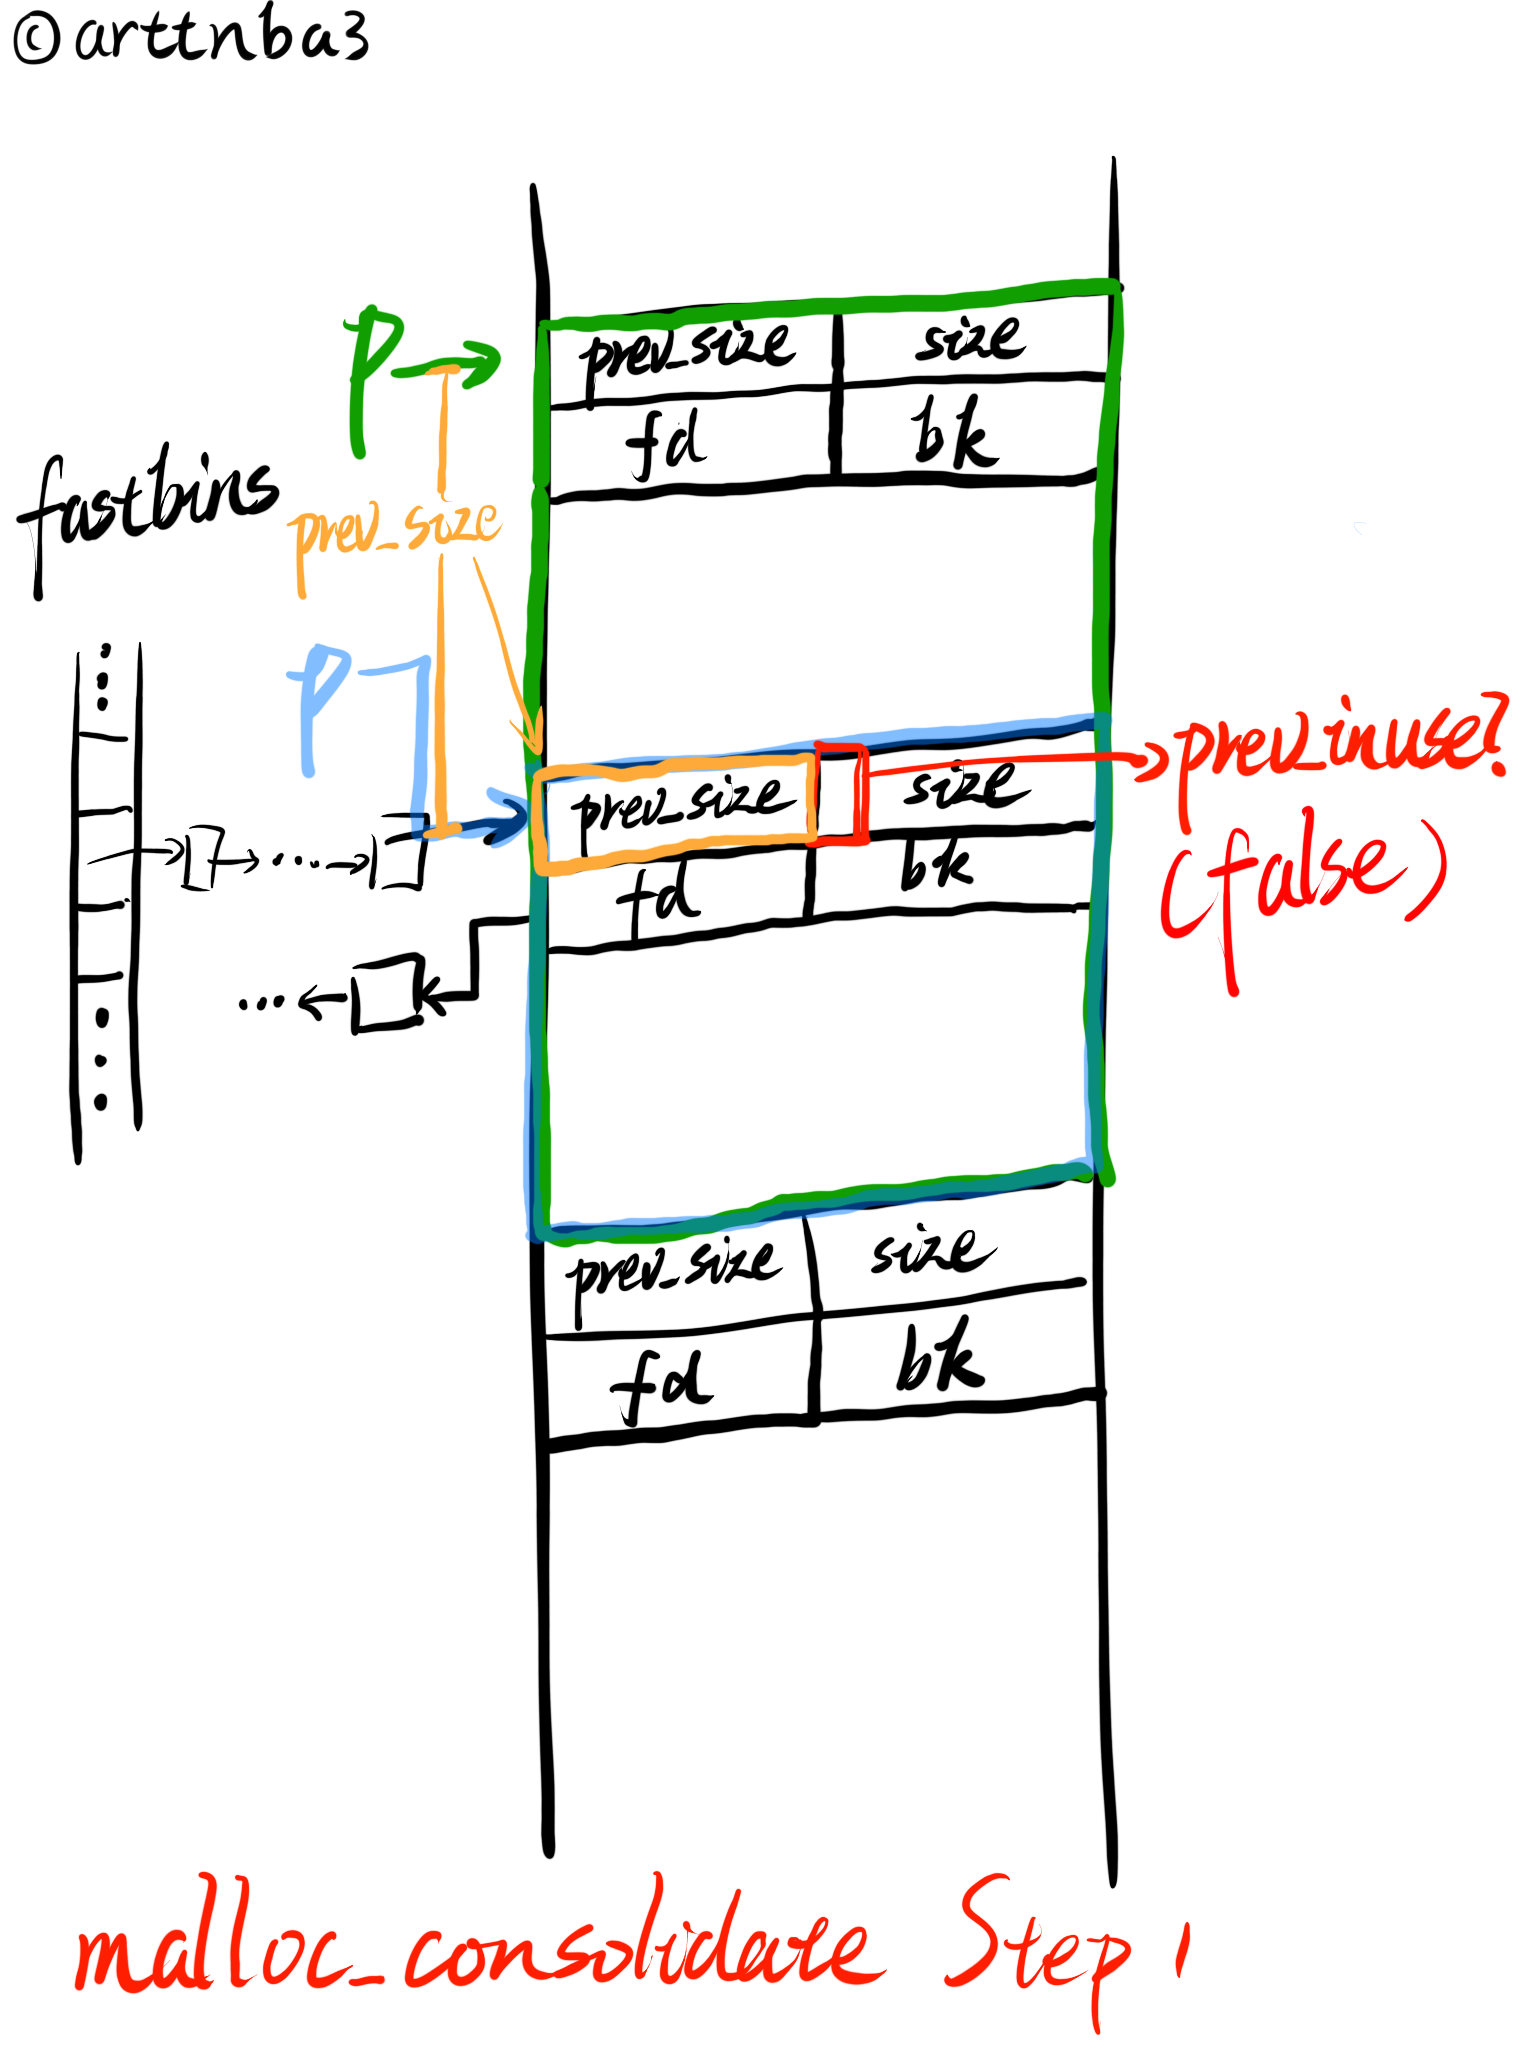 ©arttnba3
P
prev_size
size
fd
bk
fastbins
prev_size
P
prev_size
size
prev_inuse?
(false)
fd
bk
prev_size
size
fd
bk
malloc_consolidate Step 1